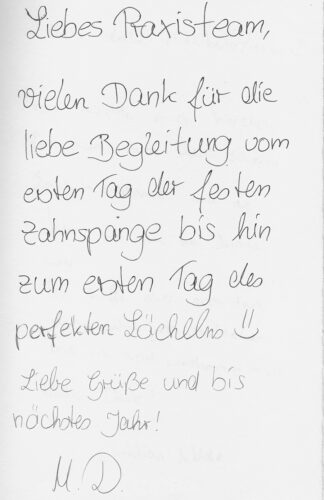 Liebes Praxisteam,
vielen Dank für die
liebe Begleitung vom
ersten Tag der festen
Zahnspange bis hin
zum ersten Tag des
perfekten Lächelns !!
Liebe Grüße und bis
nächstes Jahr!
M. D.